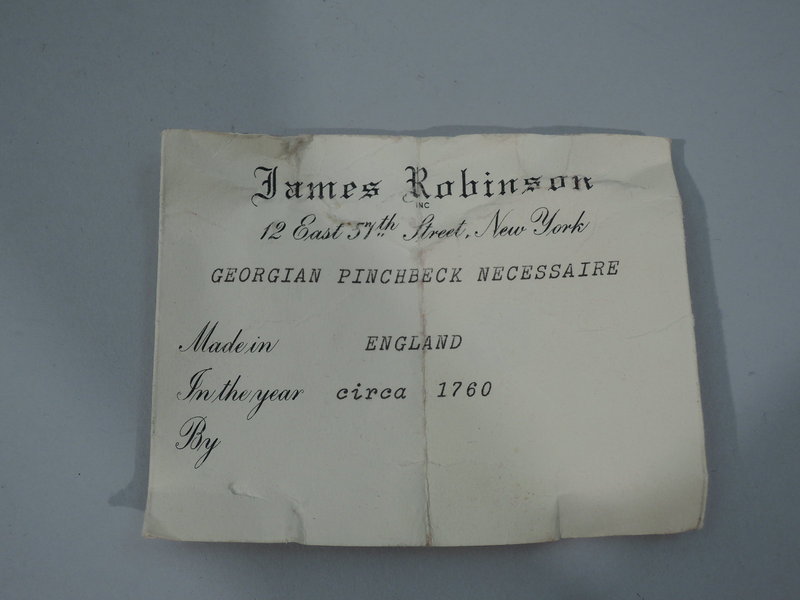 James Robinson
INC
12 East 57th Street, New York
GEORGIAN PINCHBECK NECESSAIRE
Made in ENGLAND
In the year circa 1760
By